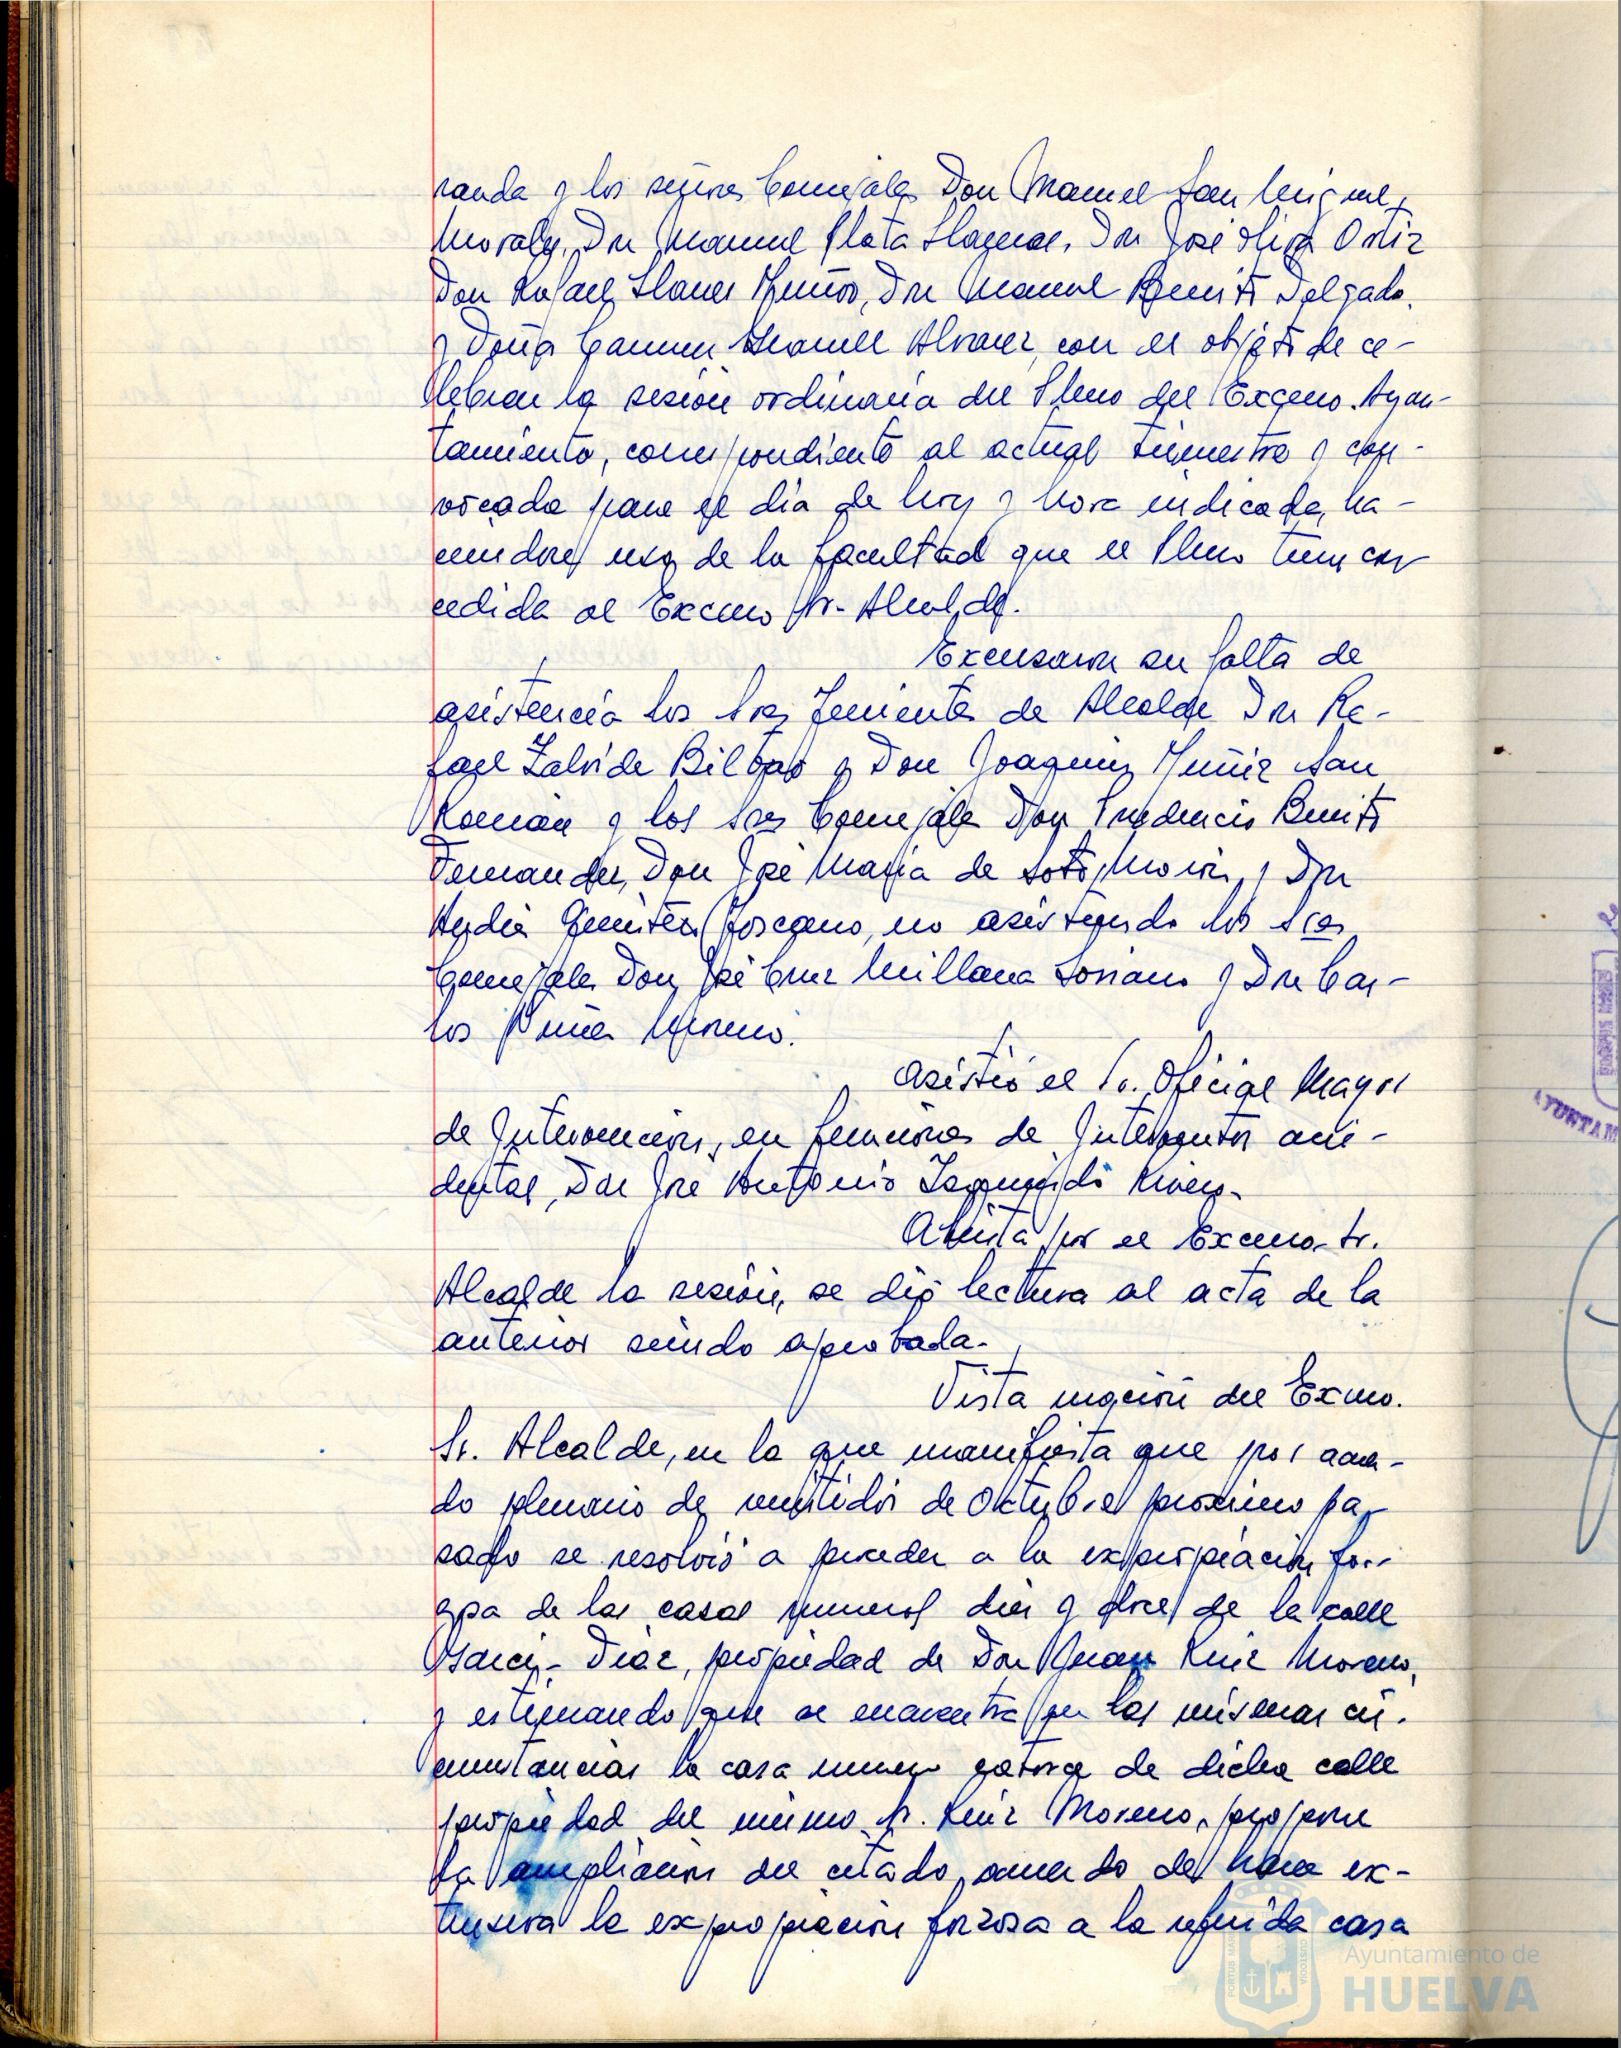 randa y los señores Concejales Don Manuel San Miguel
Morales, Don Manuel Plata Llagenas, Don José Oliva Ortiz
Don Rafael Llanes Muñoz, Don Manuel Benito Delgado,
y Doña Carmen Alvarez, con el objeto de ce-
lebrar la sesión ordinaria del Pleno del Excmo. Ayun-
tamiento, correspondiente al actual trimestre y con-
vocada para el día de hoy y hora indicada, ha-
ciendose uso de la facultad que el Pleno tiene con
cedida al Excmo Sr. Alcalde.
Excusaron su falta de
asistencia los Sres Tenientes de Alcalde Don Ra-
fael Zalvide Bilbao y Don Joaquin Muñiz San
Román y los Sres Concejales Don Prudencio Benito
Fernandez, Don José María de Soto Morón y Don
Toscano, no asistiendo los Sres
Concejales Don José Cruz Millana Soriano y Don Car-
los Moreno.
Asistió el Sr. Oficial Mayor
de Intervención, en funciones de Interventor acci-
dental, Don José Antonio Izquierdo Rivero.
Abierta por el Excmo. Sr.
Alcalde la sesión, se dió lectura al acta de la
anterior siendo aprobada.
Vista moción del Excmo.
Sr. Alcalde, en la que manifiesta que por acuer-
do plenario de veintidos de Octubre proximo pa-
sado se resolvió a proceder a la expropiación for-
zosa de las casas numeros diez y doce de la calle
Garci-Diaz, propiedad de Don Juan Ruiz Moreno,
y estimando que se encuentra en las mismas cir-
cunstancias la casa numero catorce de dicha calle
propiedad del mismo Sr. Ruiz Moreno, propone
la ampliación del citado acuerdo de hacer ex-
tensiva la expropiación forzosa a la referida casa
Ayuntamiento de
HUELVA